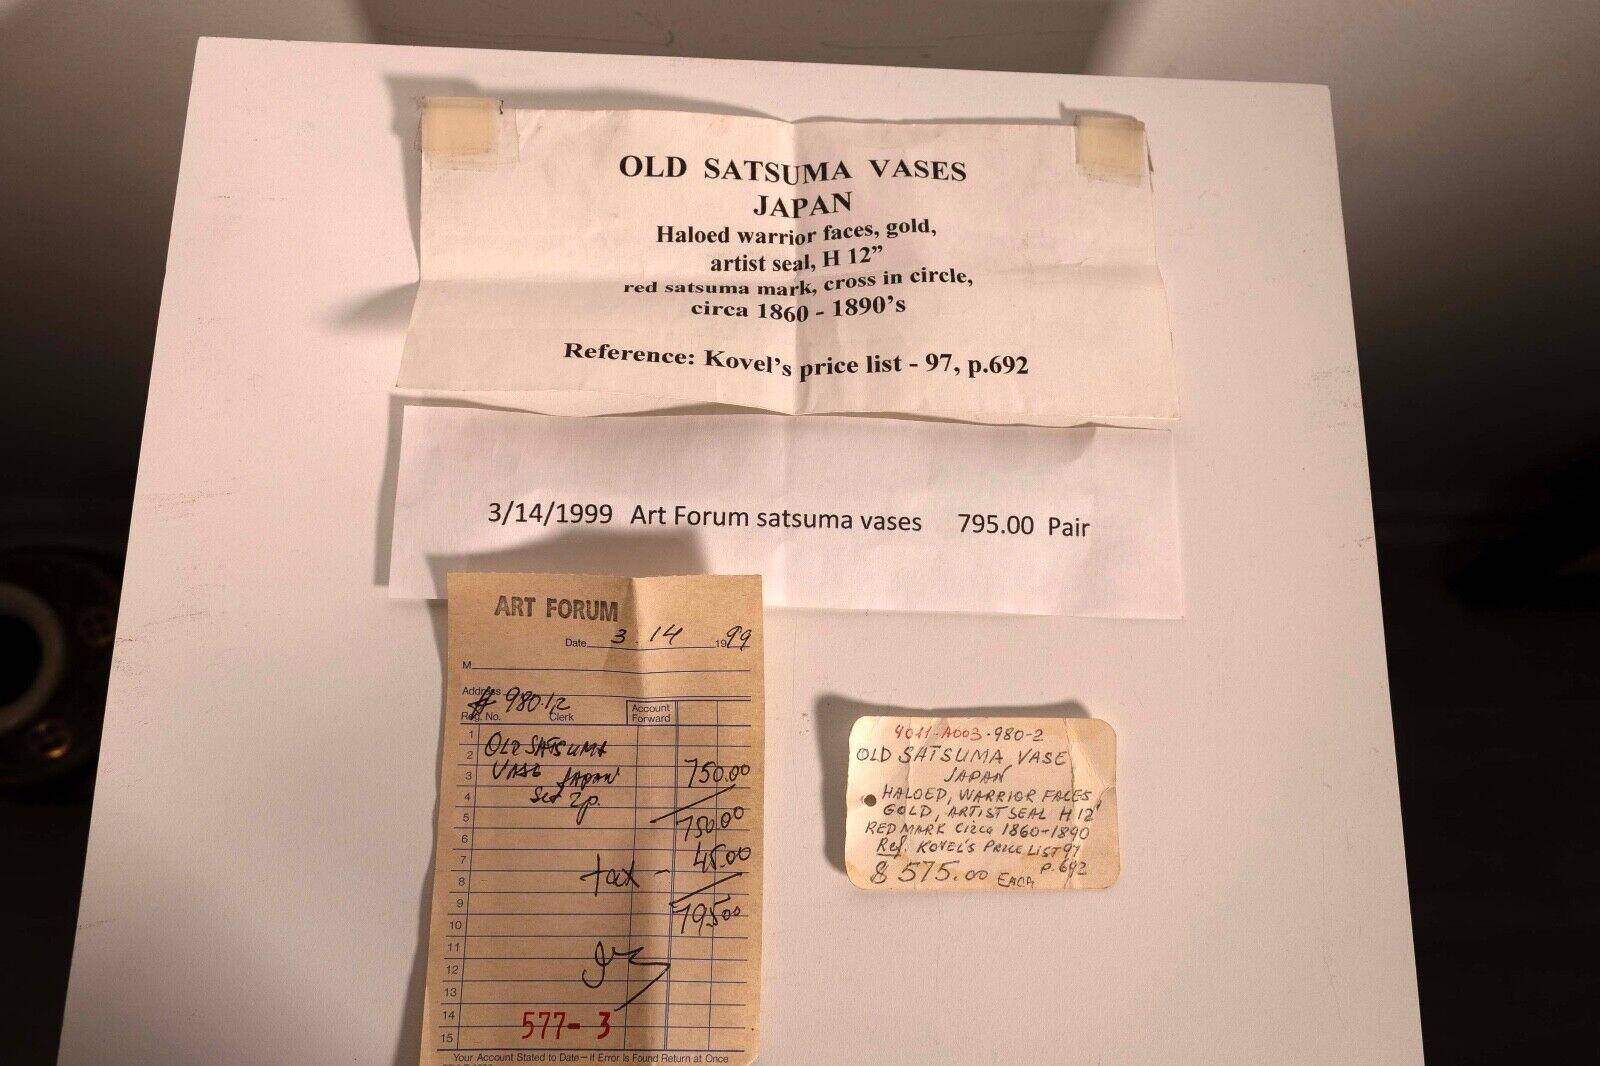 OLD SATSUMA VASES
JAPAN
Haloed warrior faces, gold,
artist seal, H 12”
red satsuma mark, cross in circle,
circa 1860 - 1890’s
Reference: Kovel’s price list - 97, p.692
3/14/1999 Art Forum satsuma vases 795.00 Pair
ART FORUM
Date 3.14 1999
M
Address
# 980.1,2
Reg. No. Clerk Account Forward
1
2 OLD SATSUMA
3 VASE JAPAN 750.00
4 Set 2p.
5 750.00
6
7 45.00
8 tax -
9 795.00
10
11
12
13
14
577- 3
15
Your Account Stated to Date — If Error Is Found Return at Once
4011-A003-980-2
OLD SATSUMA VASE
JAPAN
HALOED, WARRIOR FACES
GOLD, ARTIST SEAL H 12"
RED MARK circa 1860-1890
Ref. KOVEL'S PRICE LIST 97
P.692
$575.00 EACH